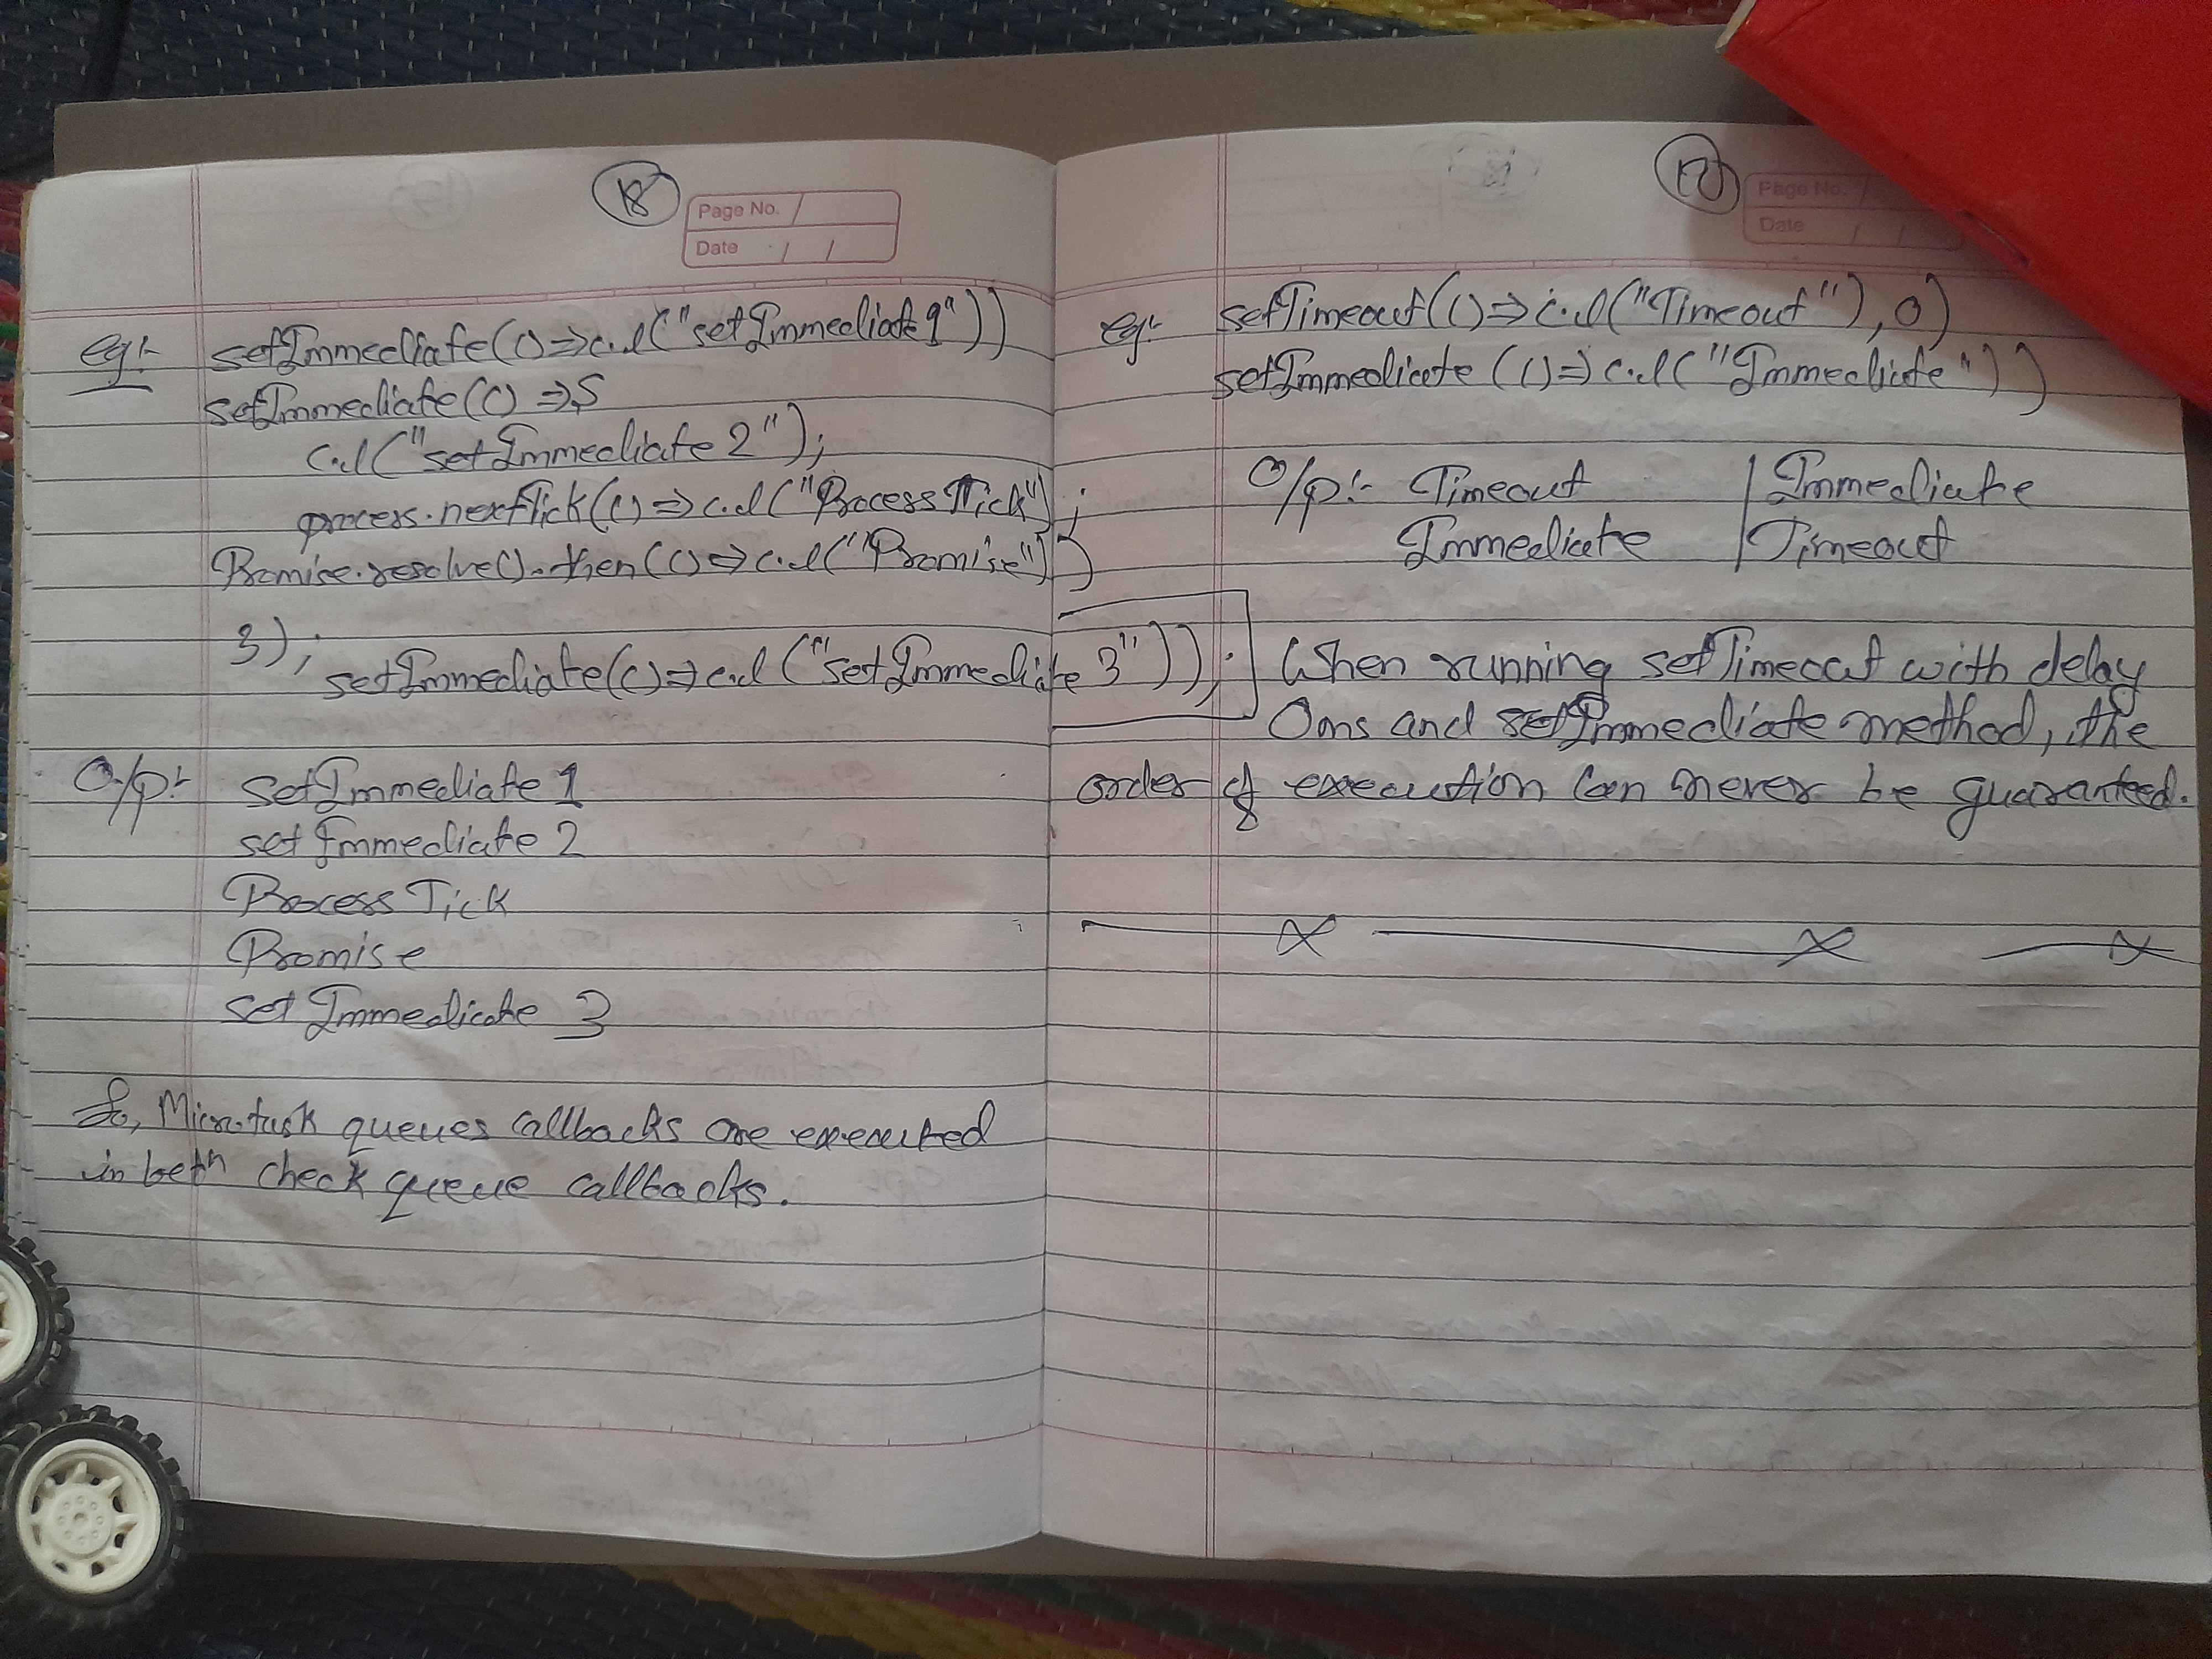 18
Page No.
Date
eg:- setImmediate(()=>c.l("setImmediate1"))
setImmediate(() => {
c.l("setImmediate 2");
process.nextTick(()=>c.l("Process Tick");
Promise.resolve().then(()=>c.l("Promise"))
});
setImmediate(()=>c.l("setImmediate 3"));
O/p:- setImmediate 1
set Immediate 2
Process Tick
Promise
set Immediate 3
So, Microtask queues callbacks are executed
in betn check queue callbacks.
Page No.
Date
eg:- setTimeout(()=>c.l("Timeout"),0)
setImmediate(()=>c.l("Immediate"))
O/p:- Timeout | Immediate
Immediate | Timeout
When running setTimeout with delay
0ms and setImmediate method, the
order of execution can never be guaranteed.